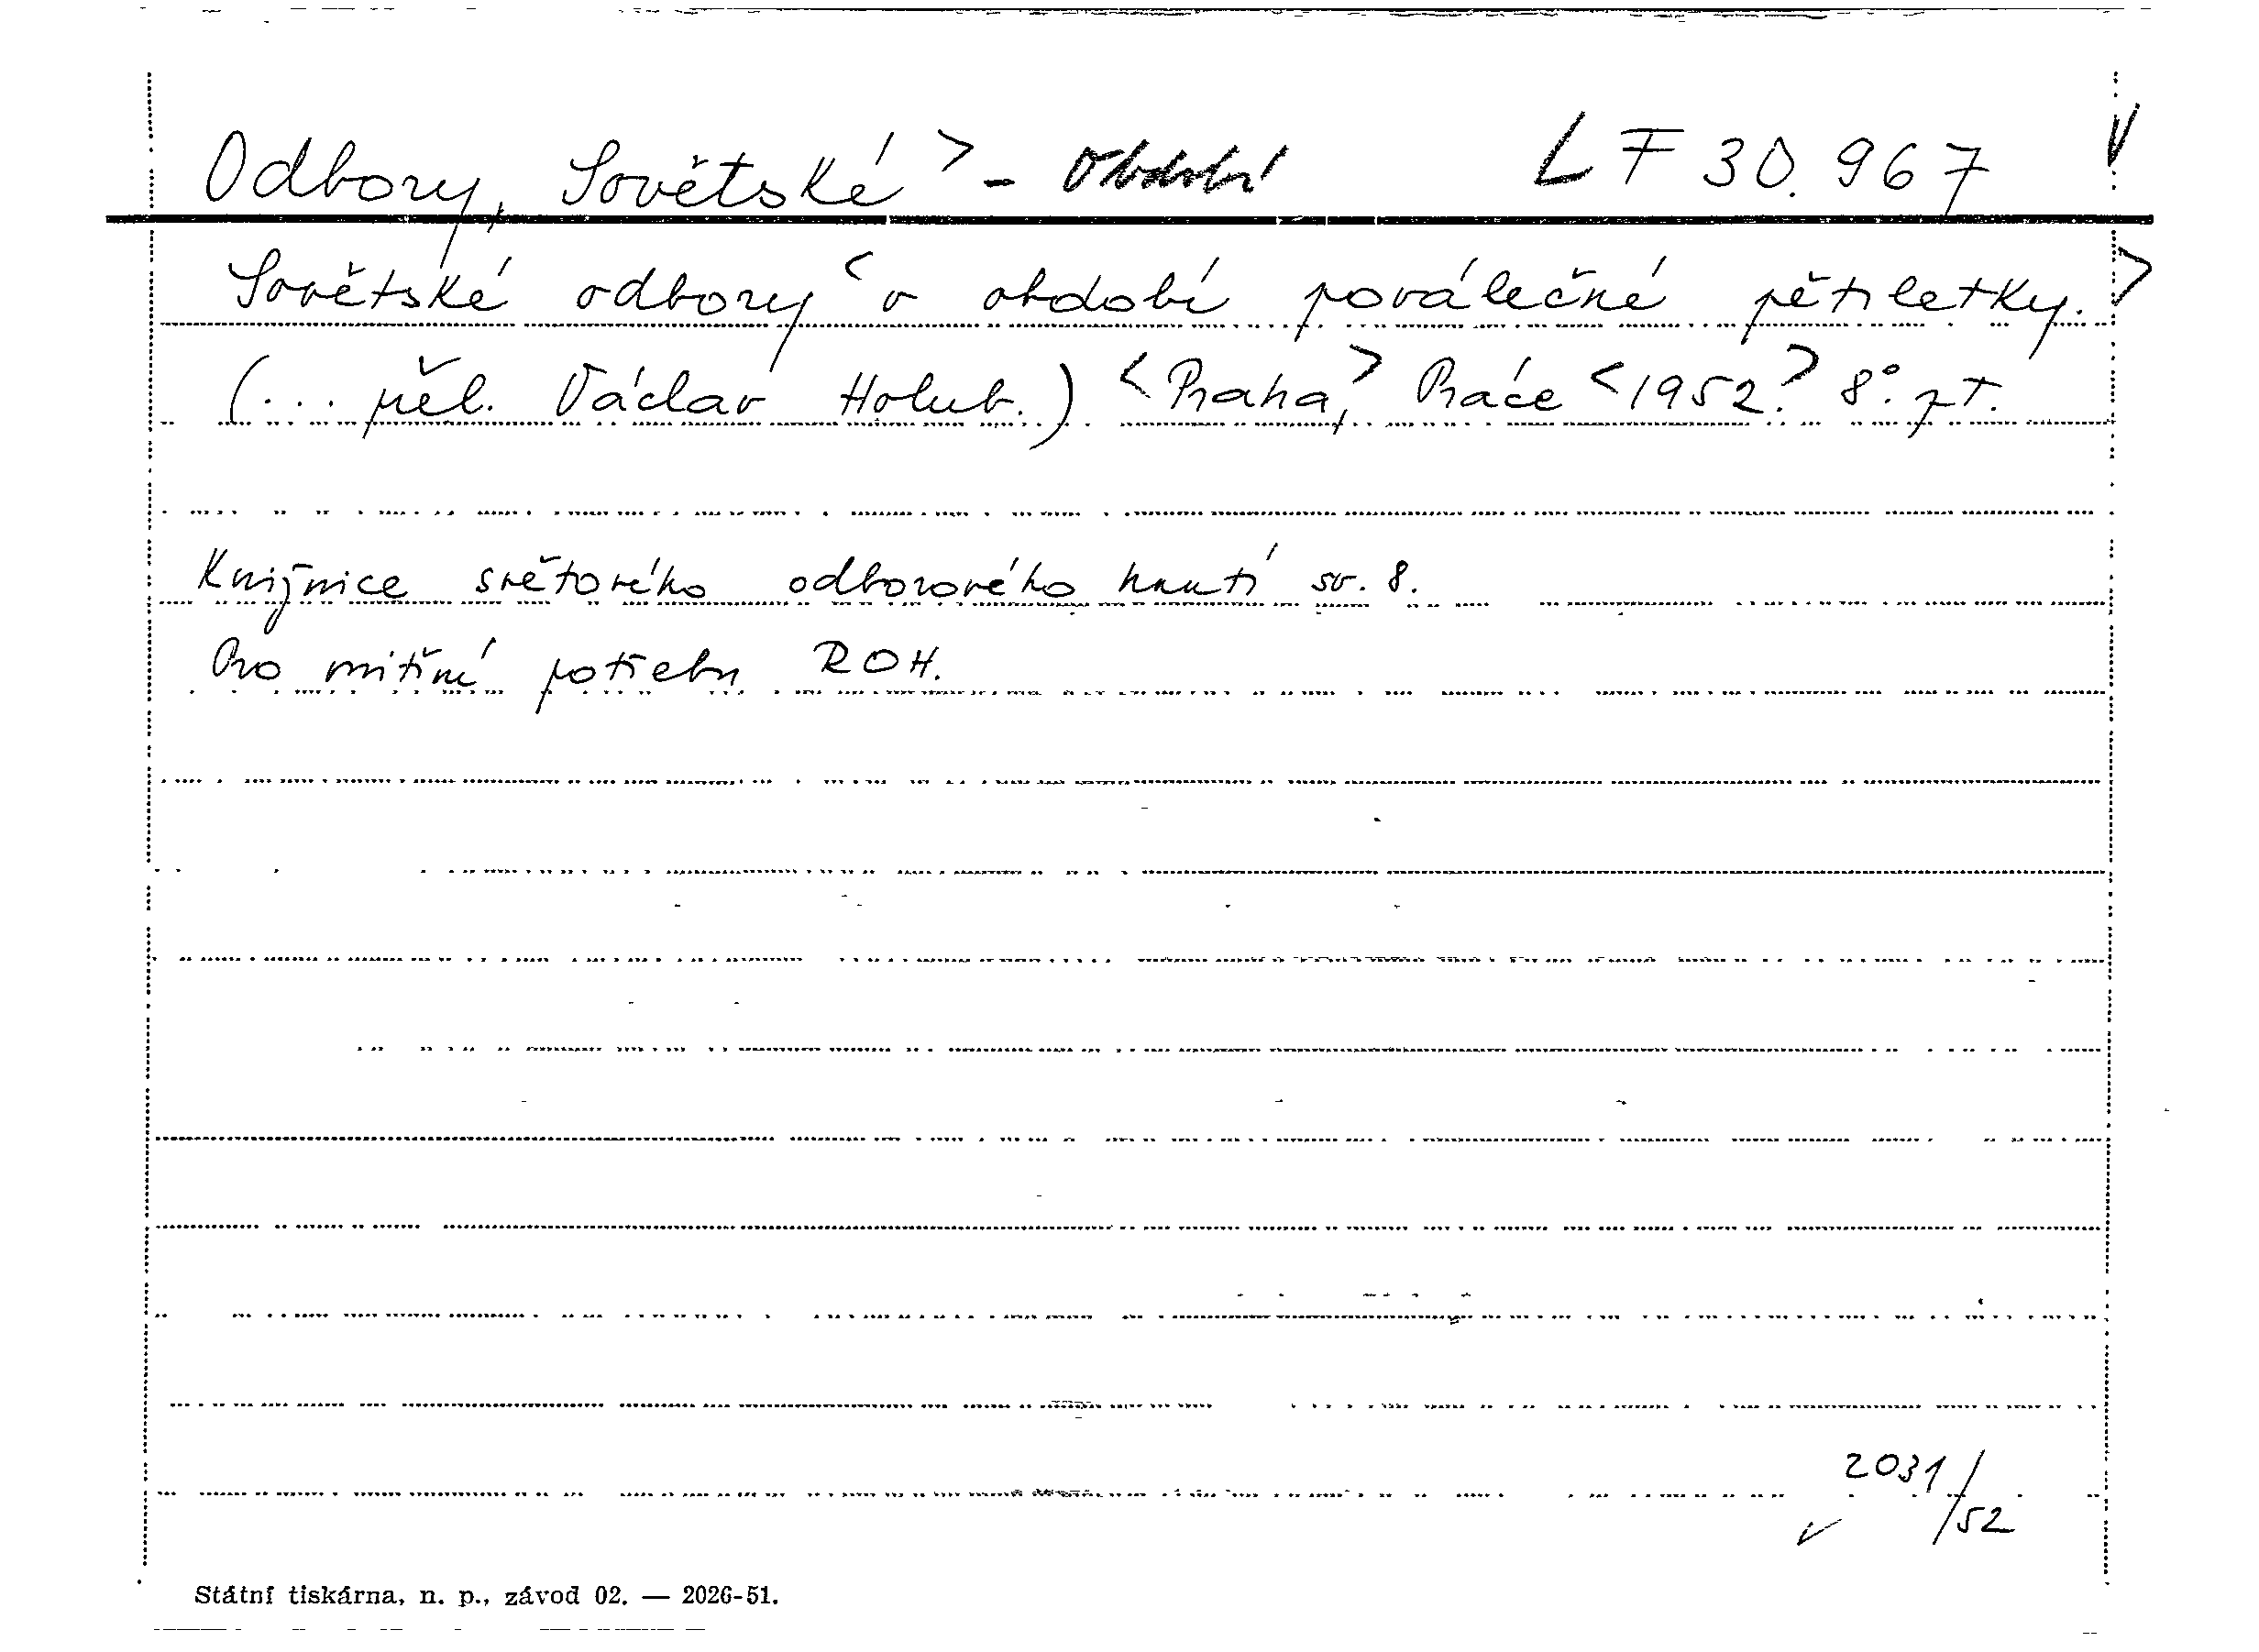 Odbory, Sovětské > - Období LF 30.967 V
Sovětské odbory < v období poválečné pětiletky. >
(... přel. Václav Holub.) < Praha, > Práce < 1952. > 8°. zT.
Knižnice světového odborového hnutí sv. 8.
Pro vnitřní potřebu ROH.
2031/52
✓
Státní tiskárna, n. p., závod 02. — 2026-51.